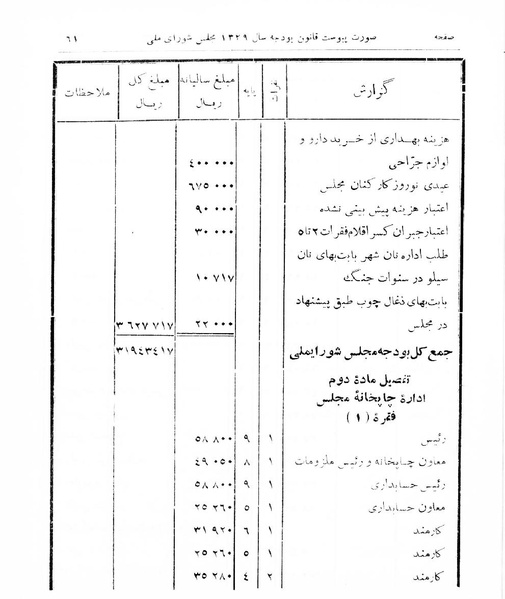 صفحه صورت پیوست قانون بودجه سال ۱۳۲۹ مجلس شورای ملی ۶۱
گزارش پایه مبلغ سالیانه ریال مبلغ کل ریال ملاحظات
هزینه بهداری از خرید دارو و
لوازم جراحی ۴۰۰ ۰۰۰
عیدی نوروز کارکنان مجلس ۶۷۵ ۰۰۰
اعتبار هزینه پیش بینی نشده ۹۰ ۰۰۰
اعتبار جبران کسر اقلام فقرات ۲ تا ۵ ۳۰ ۰۰۰
طلب اداره نان شهر بابت بهای نان
سیلو در سنوات جنگ ۱۰ ۷۱۷
بابت بهای ذغال چوب طبق پیشنهاد
در مجلس ۲۲ ۰۰۰ ۳ ۶۲۷ ۷۱۷
جمع کل بودجه مجلس شورایملی ۳۱۹۴۳۴۱۷
تفصیل مادهٔ دوم
ادارهٔ چاپخانهٔ مجلس
فقرهٔ (۱)
رئیس ۱ ۹ ۵۸ ۸۰۰
معاون چاپخانه و رئیس ملزومات ۱ ۸ ۴۹ ۰۵۰
رئیس حسابداری ۱ ۹ ۵۸ ۸۰۰
معاون حسابداری ۱ ۵ ۲۵ ۲۶۰
کارمند ۱ ۶ ۳۱ ۹۲۰
کارمند ۱ ۵ ۲۵ ۲۶۰
کارمند ۲ ۴ ۳۵ ۲۸۰